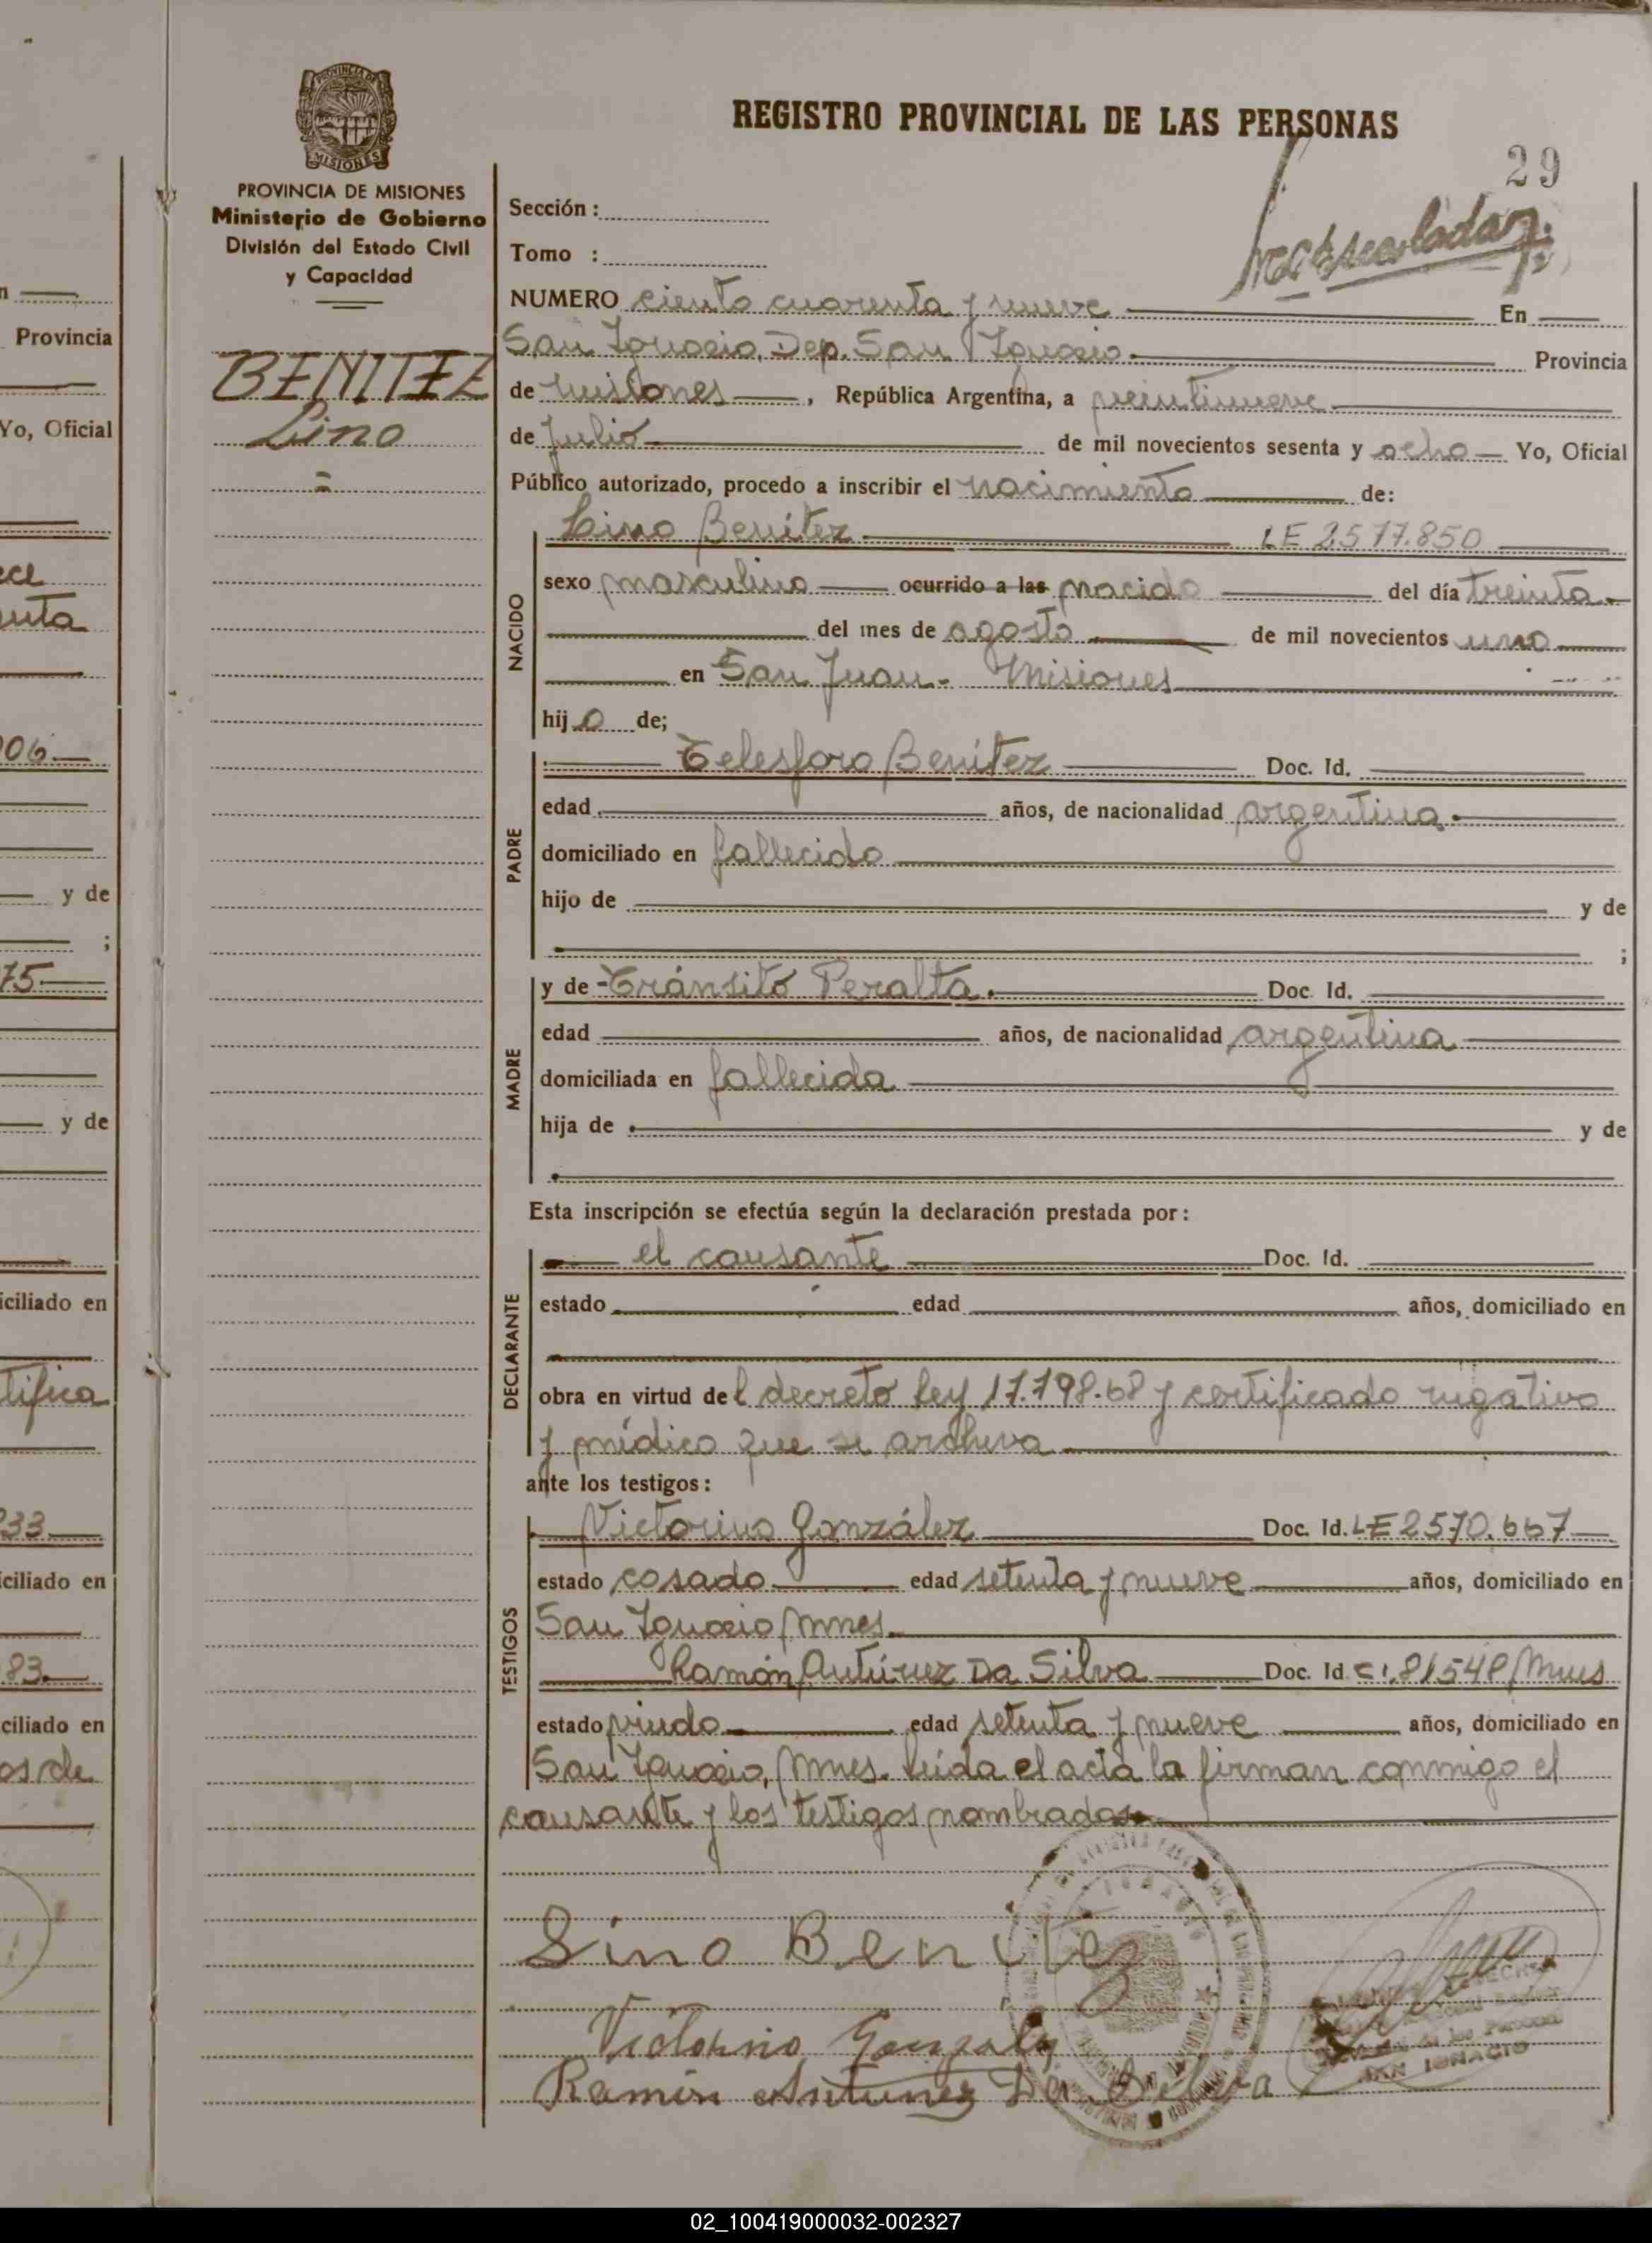 PROVINCIA DE
MISIONES
PROVINCIA DE MISIONES
Ministerio de Gobierno
División del Estado Civil
y Capacidad
BENITEZ
Lino
REGISTRO PROVINCIAL DE LAS PERSONAS
29
Sección :
Tomo :
NUMERO ciento cuarenta y nueve En
San Ignacio, Dep. San Ignacio. Provincia
de Misiones, República Argentina, a veintinueve
de Julio de mil novecientos sesenta y ocho Yo, Oficial
Público autorizado, procedo a inscribir el nacimiento de:
Lino Benítez LE 2577.850
NACIDO
sexo masculino ocurrido a las nacido del día treinta
del mes de agosto de mil novecientos uno
en San Juan - Misiones
hijo de;
PADRE
Telesforo Benítez Doc. Id.
edad años, de nacionalidad argentina.
domiciliado en fallecido
hijo de y de
;
MADRE
y de Tránsito Peralta. Doc. Id.
edad años, de nacionalidad argentina
domiciliada en fallecida
hija de y de
Esta inscripción se efectúa según la declaración prestada por:
DECLARANTE
el causante Doc. Id.
estado edad años, domiciliado en
obra en virtud del decreto ley 17.798.68 y certificado negativo
y médico que se archiva
ante los testigos:
TESTIGOS
Victorino González Doc. Id. LE 2570.667
estado casado edad setenta y nueve años, domiciliado en
San Ignacio, Mnes.
Ramón Antúnez Da Silva Doc. Id. C.I. 81548 Mnes
estado viudo edad setenta y nueve años, domiciliado en
San Ignacio, Mnes. Leída el acta la firman conmigo el
causante y los testigos nombrados
Lino Benitez
Victorino Gonzalez
Ramón Antunez Da Silva
SAN IGNACIO
n
Provincia
Yo, Oficial
ece
enta
06
y de
;
75
y de
iciliado en
tifica
33
iciliado en
83
ciliado en
os de
02_100419000032-002327